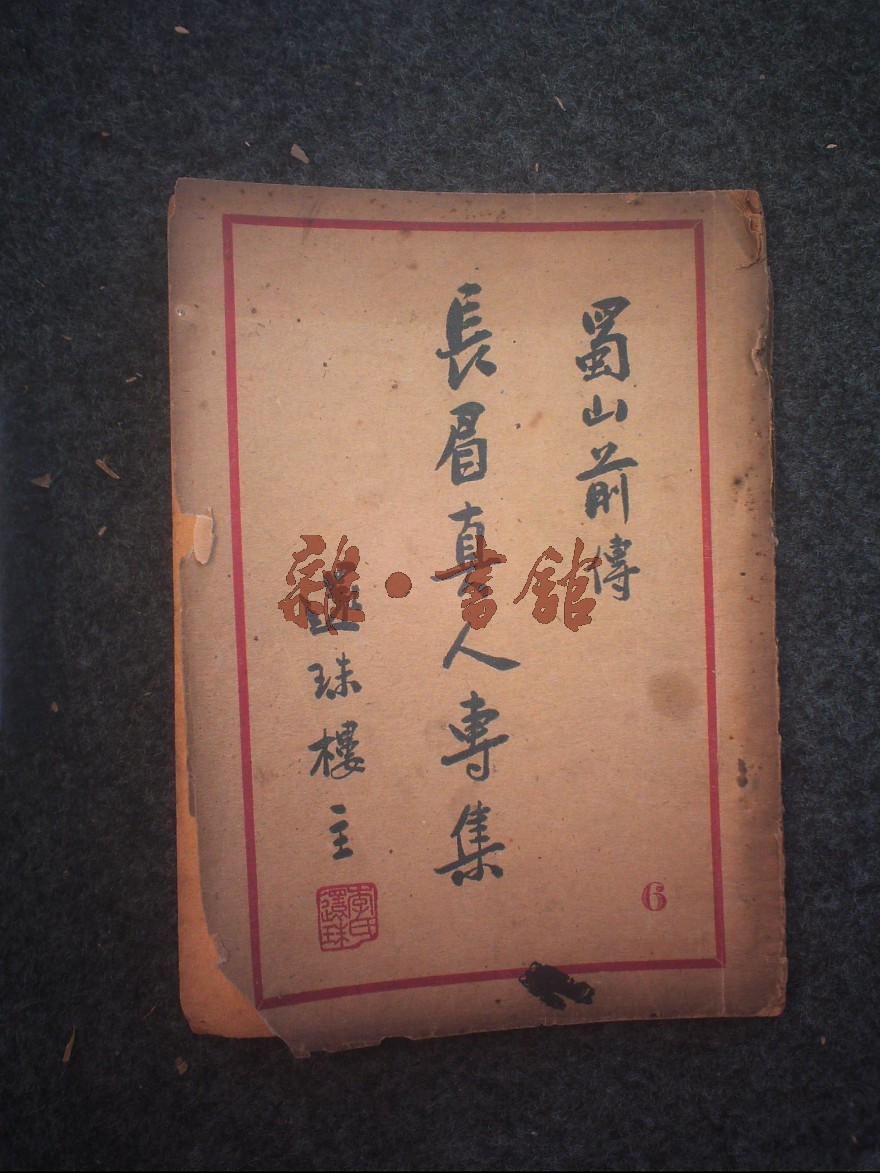 蜀山前傳
長眉真人專集
還珠樓主
李氏還珠
6
雜·書館